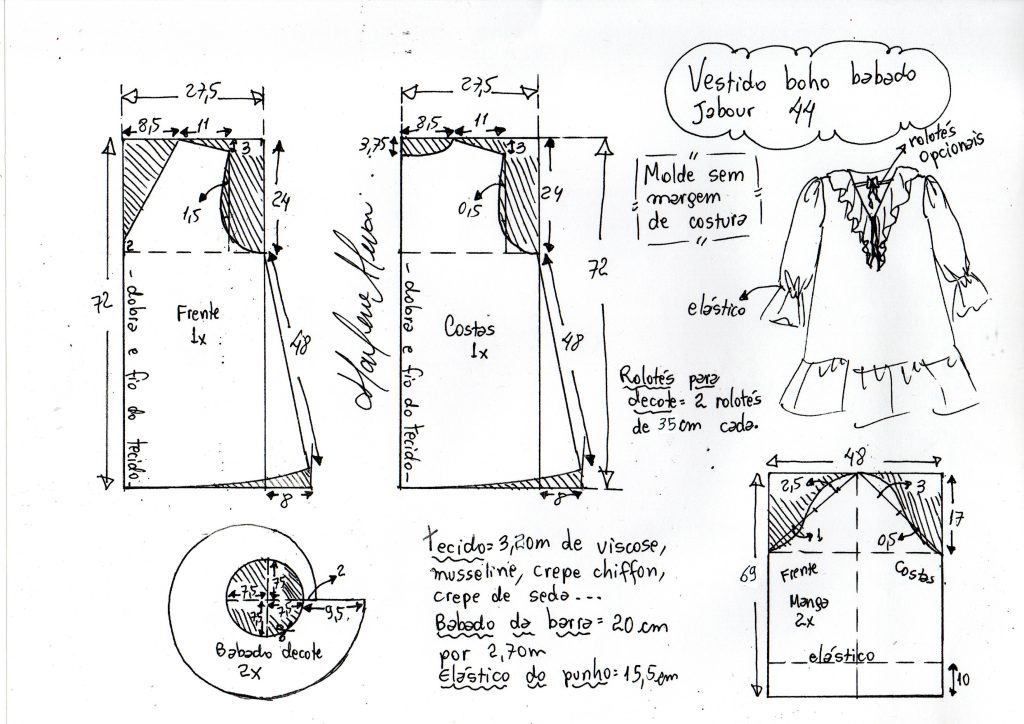 Vestido boho babado
Jabour 44
rolotés
opcionais
"
Molde sem
margem
de costura
"
elástico
Rolotés para
decote= 2 rolotés
de 35cm cada.
27,5
8,5
11
3
1,5
24
2
72
Frente
1x
48
8
-dobra e fio do tecido-
27,5
8,5
11
3,75
3
0,5
24
72
Costas
1x
48
8
-dobra e fio do tecido-
Marlene Mukai
7,5
7,5
7,5
7,5
2
9,5
Babado decote
2x
tecido= 3,20m de viscose,
musseline, crepe chiffon,
crepe de seda...
Babado da barra= 20cm
por 2,70m
Elástico do punho= 15,5cm
48
2,5
3
1
0,5
17
69
Frente
Costas
Manga
2x
elástico
10